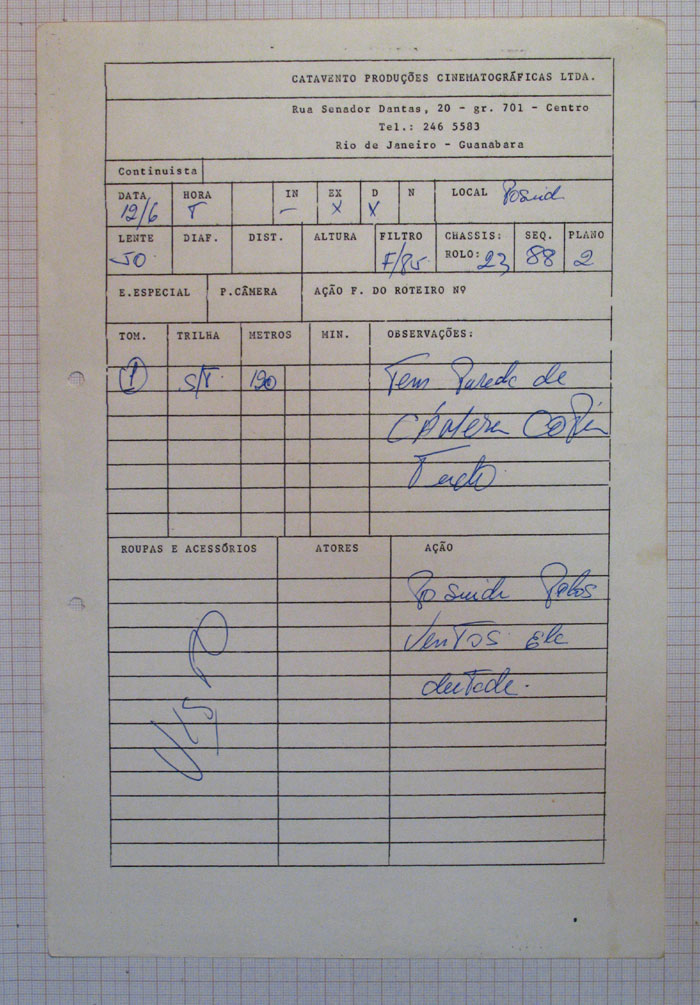 CATAVENTO PRODUÇÕES CINEMATOGRÁFICAS LTDA.
Rua Senador Dantas, 20 - gr. 701 - Centro
Tel.: 246 5583
Rio de Janeiro - Guanabara
Continuista
DATA HORA IN EX D N LOCAL
12/6 T — X X
LENTE DIAF. DIST. ALTURA FILTRO CHASSIS: SEQ. PLANO
50 F/85 ROLO: 23 88 2
E.ESPECIAL P.CÂMERA AÇÃO F. DO ROTEIRO Nº
TOM. TRILHA METROS MIN. OBSERVAÇÕES:
1 S/T. 120 Tem de
CÂMERA
ROUPAS E ACESSÓRIOS ATORES AÇÃO
Pelos
Ventos ela
deitada.
VISTO